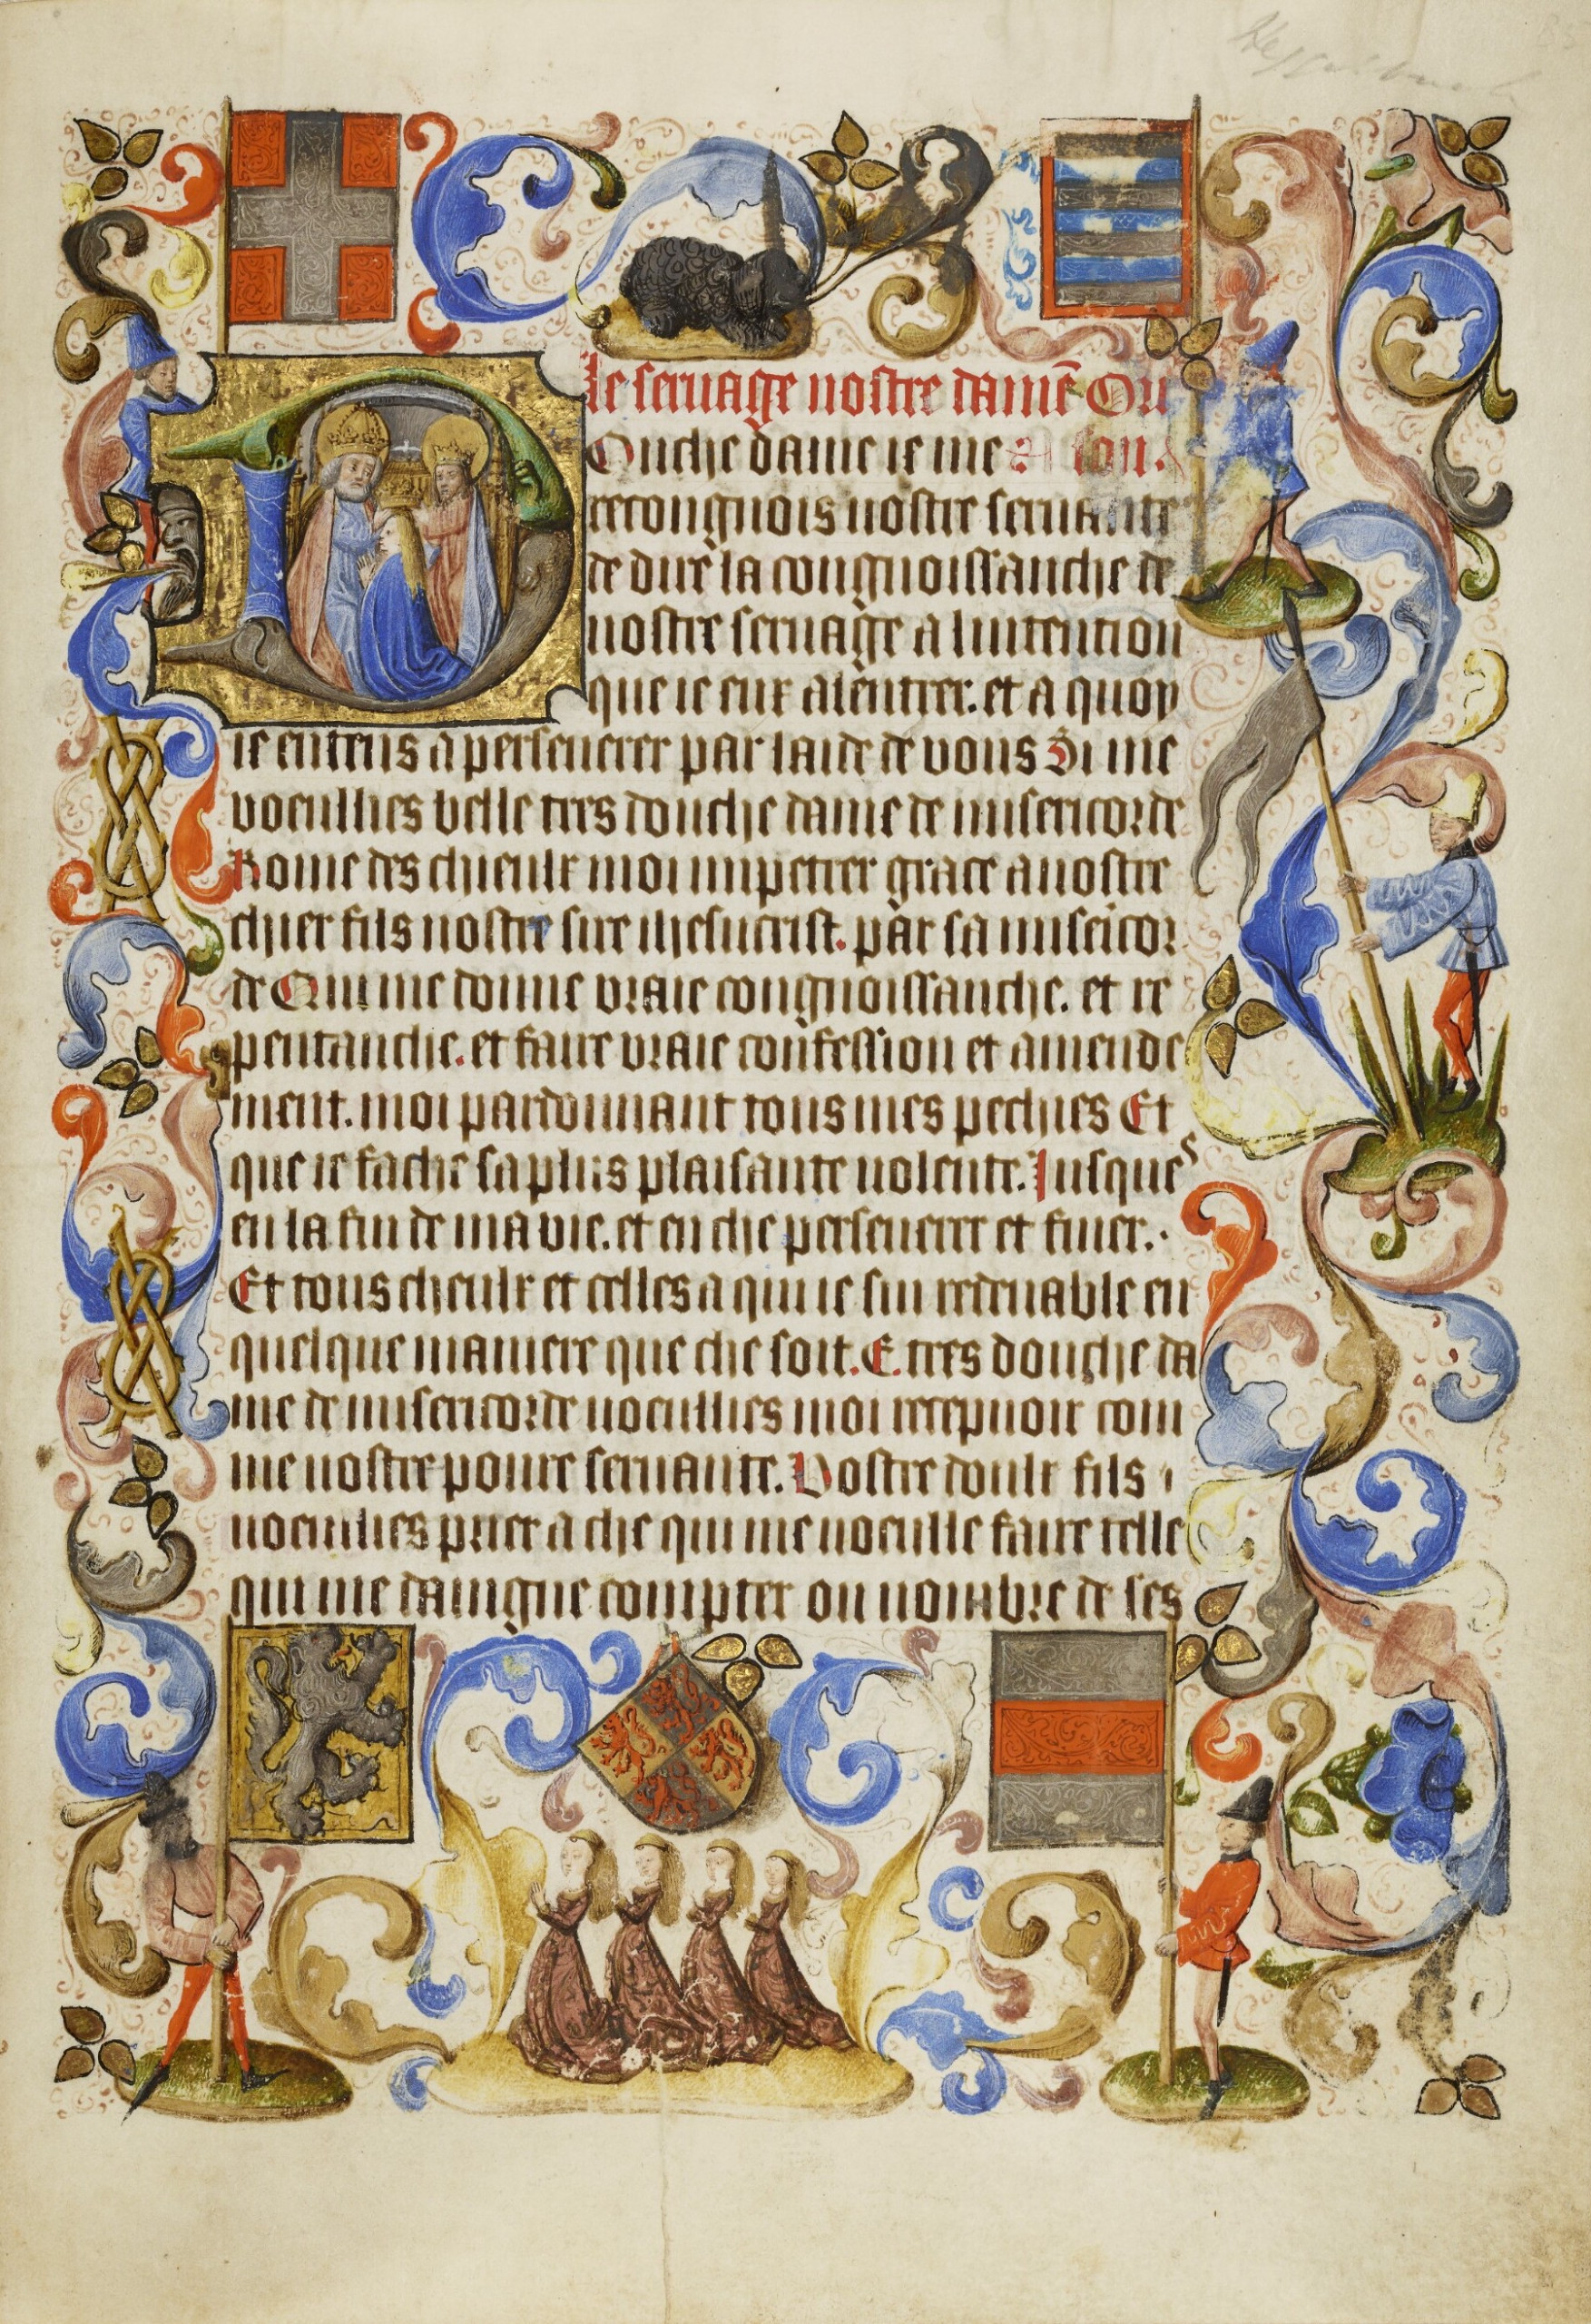 le seruage nostre dame Ou
Ouche dame ie me son.
recongnois vostre seruante
de dire la congnoissanche de
vostre seruage a lintention
que ie eux alentrer. et a quoy
ie entens a perseuerer par laide de vous Si me
voeullies belle tres douche dame de misericorde
Roine des chieulx moi impetrer grace a vostre
chier fils nostre sire ihesucrist. par sa misericor
de Qui me donne vraie congnoissanche. et re
pentanche. et faire vraie confession et amende
ment. moi pardonnant tous mes pechies Et
que ie fache sa plus plaisante volente. Jusques
en la fin de ma vie. et en che perseuerer et finer.
Et tous cheulx et celles a qui ie sui redeuable en
quelque maniere que che soit. E. tres douche da
me de misericorde voeullies moi recepuoir com
me vostre poure seruante. Vostre doulx fils
voeullies prier a che qui me voeulle faire telle
qui me daingne compter ou nombre de ses